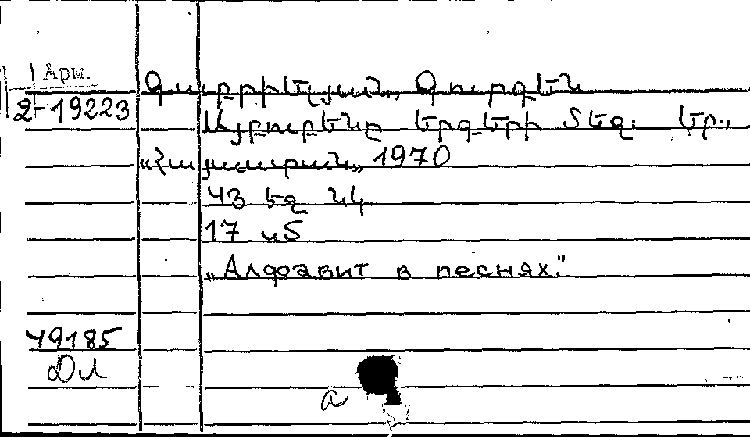 Арм.
2-19223
Գաբրիելյան, Գուրգեն
Այբուբենը երգերի մեջ. Եր.,
«Հայաստան» 1970
43 էջ նկ.
17 սմ
„Алфавит в песнях."
49185
Дл
а